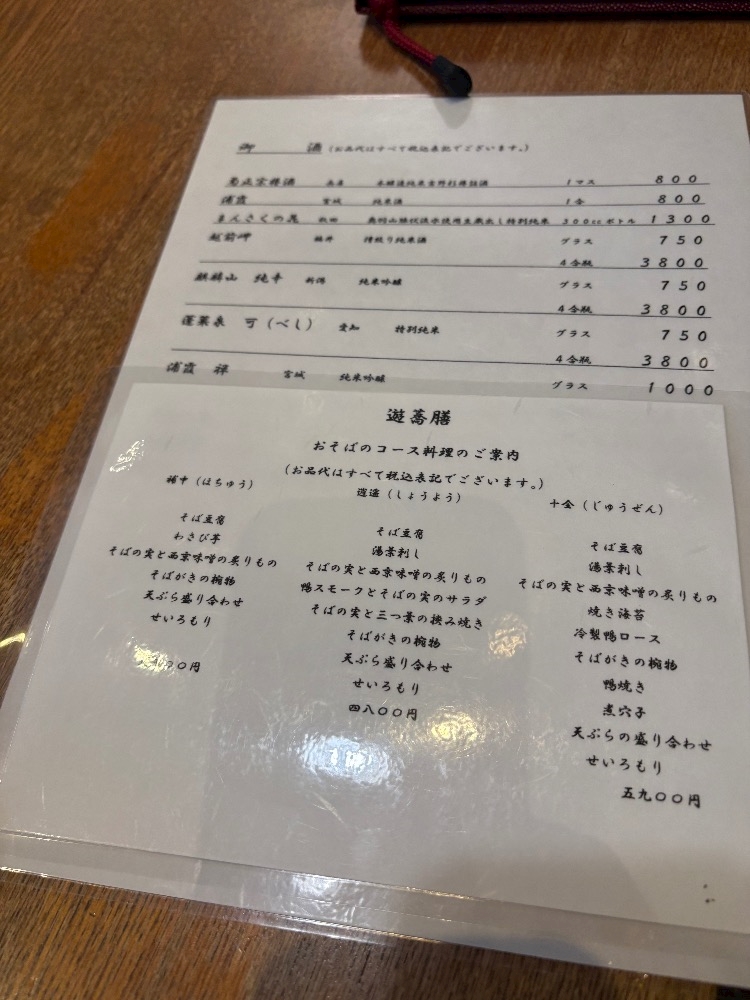 御 酒 (お品代はすべて税込表記でございます。)
菊正宗樽酒 兵庫 本醸造純米吉野杉樽詰酒 1マス 800
浦霞 宮城 純米酒 1合 800
まんさくの花 秋田 奥羽山脈伏流水使用生蔵出し特別純米 300ccボトル 1300
越前岬 福井 槽搾り純米酒 グラス 750
4合瓶 3800
麒麟山 純辛 新潟 純米吟醸 グラス 750
4合瓶 3800
蓬莱泉 可(べし) 愛知 特別純米 グラス 750
4合瓶 3800
浦霞 禅 宮城 純米吟醸 グラス 1000
遊蕎膳
おそばのコース料理のご案内
(お品代はすべて税込表記でございます。)
補中(ほちゅう)
そば豆腐
わさび芋
そばの実と西京味噌の炙りもの
そばがきの椀物
天ぷら盛り合わせ
せいろもり
〇〇円
逍遥(しょうよう)
そば豆腐
湯葉刺し
そばの実と西京味噌の炙りもの
鴨スモークとそばの実のサラダ
そばの実と三つ葉の挟み焼き
そばがきの椀物
天ぷら盛り合わせ
せいろもり
四八〇〇円
十全(じゅうぜん)
そば豆腐
湯葉刺し
そばの実と西京味噌の炙りもの
焼き海苔
冷製鴨ロース
そばがきの椀物
鴨焼き
煮穴子
天ぷらの盛り合わせ
せいろもり
五九〇〇円